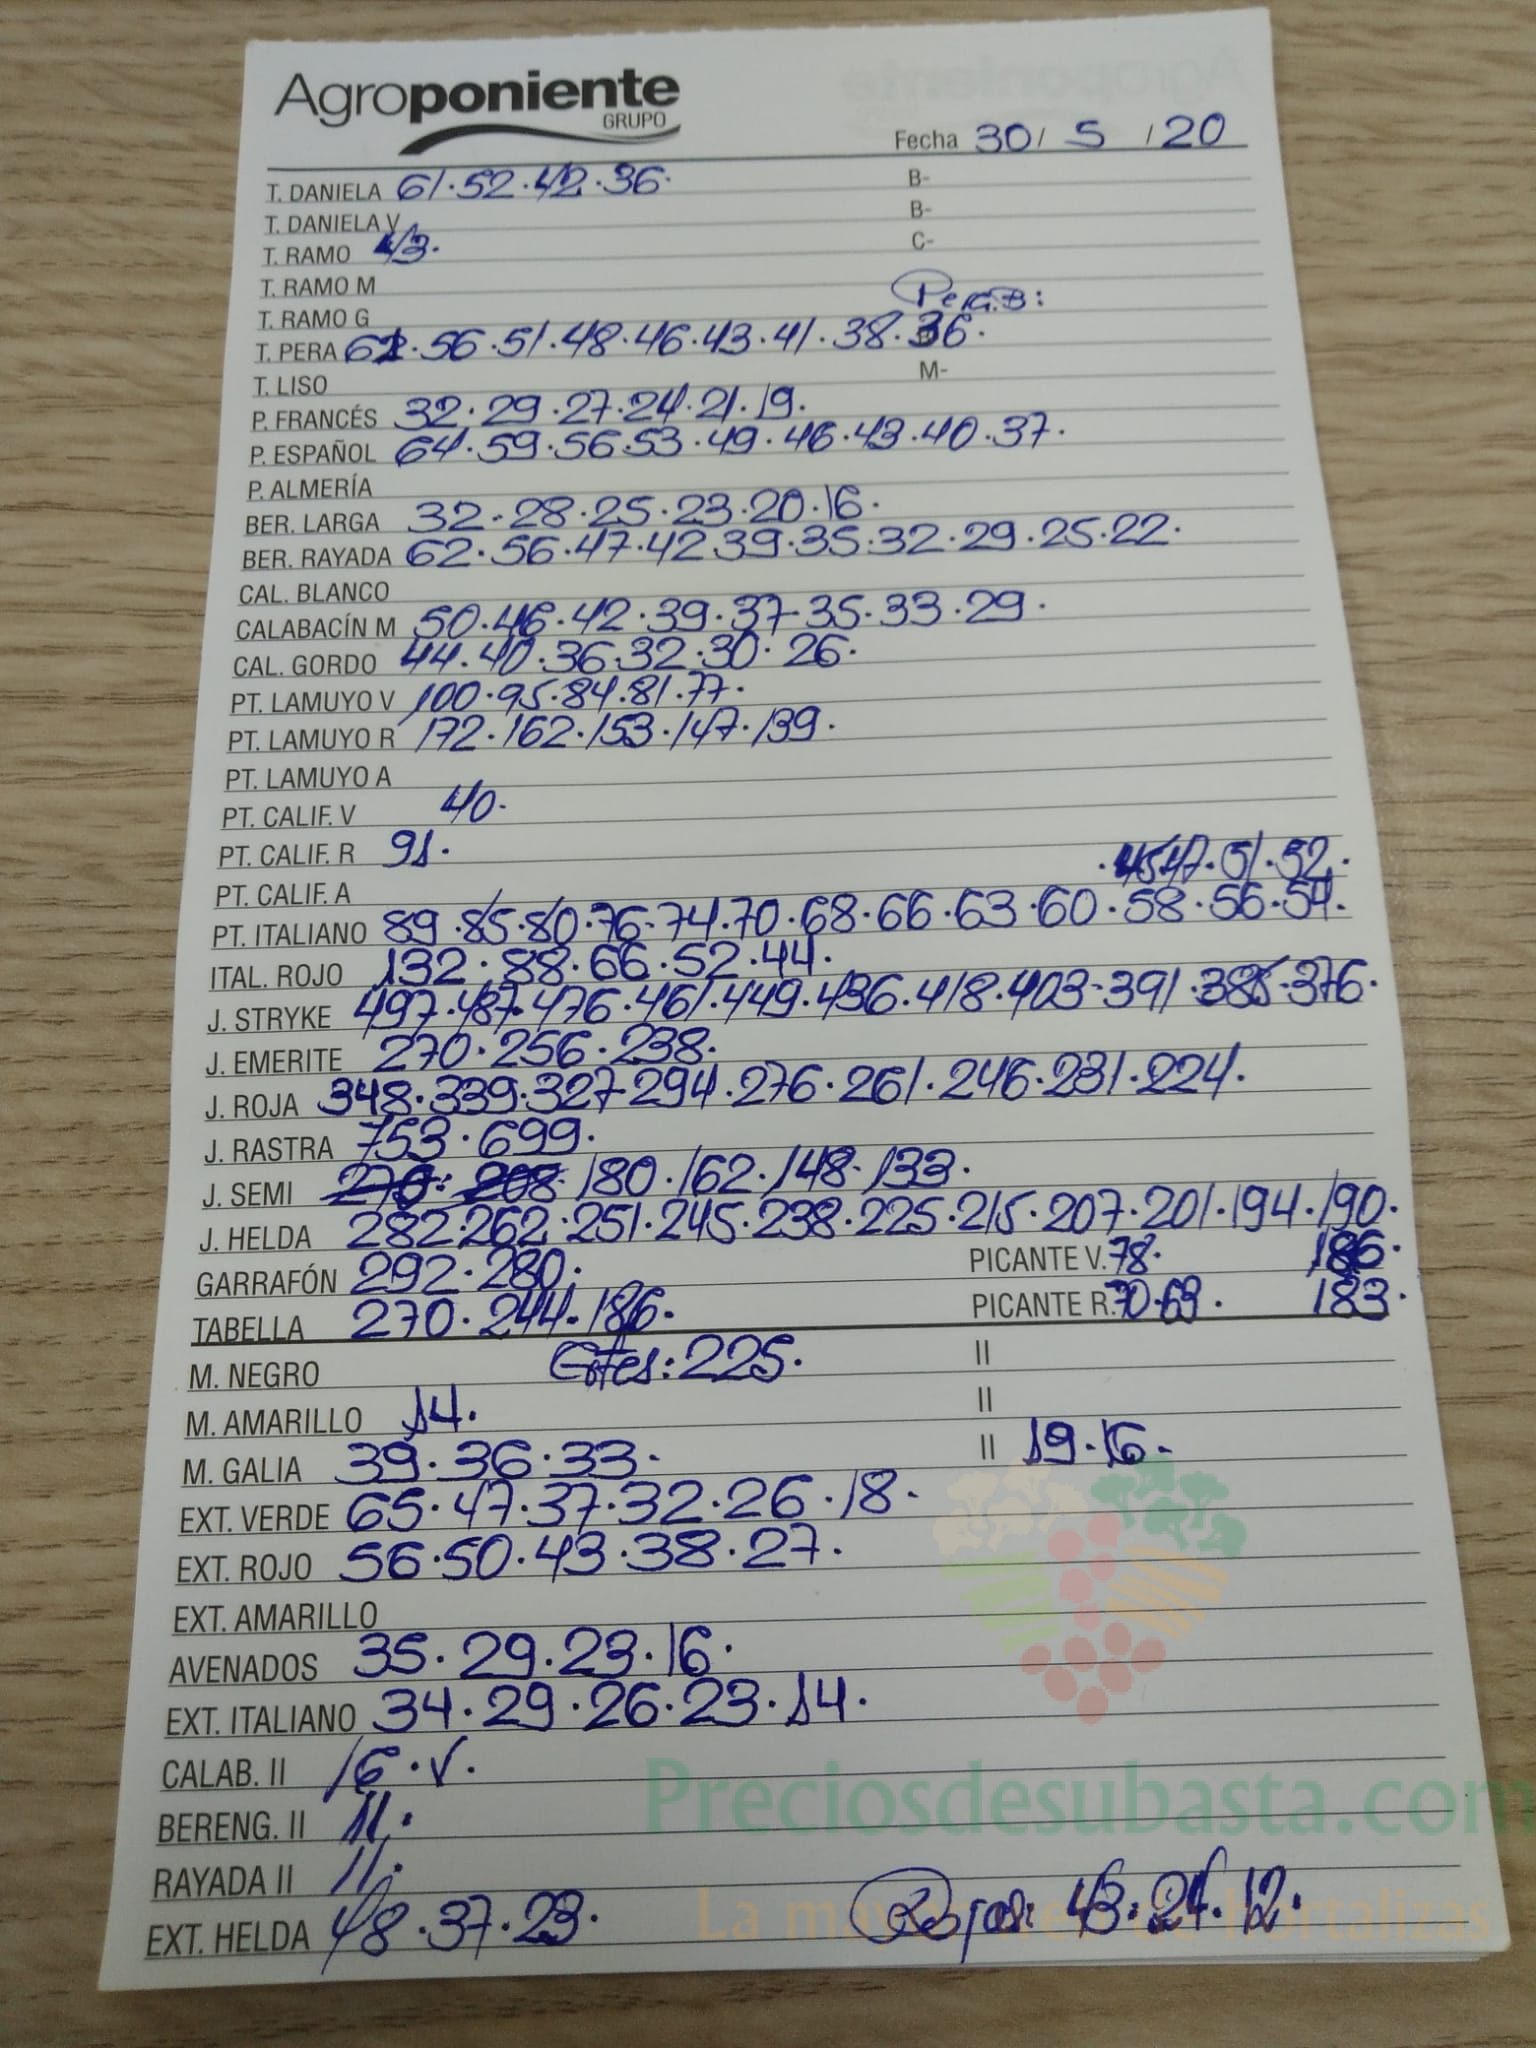 Agroponiente
GRUPO
Fecha 30 / 5 / 20
T. DANIELA 61·52·42·36· B-
T. DANIELA V B-
T. RAMO 43· C-
T. RAMO M
T. RAMO G
T. PERA 62·56·51·48·46·43·41·38·36·
T. LISO M-
P. FRANCÉS 32·29·27·24·21·19·
P. ESPAÑOL 64·59·56·53·49·46·43·40·37·
P. ALMERÍA
BER. LARGA 32·28·25·23·20·16·
BER. RAYADA 62·56·47·42·39·35·32·29·25·22·
CAL. BLANCO
CALABACÍN M 50·46·42·39·37·35·33·29·
CAL. GORDO 44·40·36·32·30·26·
PT. LAMUYO V 100·95·84·81·77·
PT. LAMUYO R 172·162·153·147·139·
PT. LAMUYO A
PT. CALIF. V 40·
PT. CALIF. R 91·
PT. CALIF. A ·45·47·51·52·
PT. ITALIANO 89·85·80·76·74·70·68·66·63·60·58·56·54·
ITAL. ROJO 132·88·66·52·44·
J. STRYKE 497·487·476·461·449·436·418·403·391·385·376·
J. EMERITE 270·256·238·
J. ROJA 348·339·327·294·276·261·246·231·224·
J. RASTRA 753·699·
J. SEMI 180·162·148·133·
J. HELDA 282·262·251·245·238·225·215·207·201·194·190·
GARRAFÓN 292·280· PICANTE V. 78· 186·
TABELLA 270·244·186· PICANTE R. 70·69· 183·
M. NEGRO 225· II
M. AMARILLO 14· II
M. GALIA 39·36·33· II 19·16·
EXT. VERDE 65·47·37·32·26·18·
EXT. ROJO 56·50·43·38·27·
EXT. AMARILLO
AVENADOS 35·29·23·16·
EXT. ITALIANO 34·29·26·23·14·
CALAB. II 16·V·
Preciosdesubasta.com
BERENG. II 11·
RAYADA II 11·
EXT. HELDA 48·37·23· Rojas: 43·24·12·